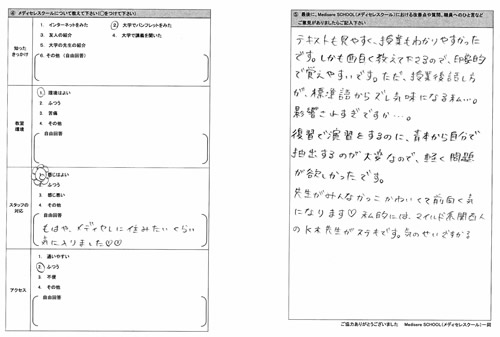 ④ メディセレスクールについて教えて下さい(○をつけて下さい)
知ったきっかけ
1. インターネットをみた
② 大学でパンフレットをみた
3. 友人の紹介
4. 大学で講義を聞いた
5. 大学の先生の紹介
6. その他(自由回答)
教室環境
① 環境はよい
2. ふつう
3. 苦痛
4. その他
自由回答
スタッフの対応
① 感じはよい
2. ふつう
3. 感じ悪い
4. その他
自由回答
もはや、メディセレに住みたいくらい
気に入りました♡♡
アクセス
1. 通いやすい
② ふつう
3. 不便
4. その他
自由回答
⑤ 最後に、Medisere SCHOOL(メディセレスクール)における改善点や質問、職員へのひと言など
ご意見がありましたらご記入下さい
テキストも見やすく、授業もわかりやすかった
です。しかも面白く教えて下さるので、印象的
で覚えやすいです。ただ、授業後話しら
が、標準語からズレ気味になる私…。
影響されすぎですか…。
復習で演習をするのに、青本から自分で
抽出するのが大変なので、軽く問題
が欲しかったです。
先生がみんなかっこかわいくて前向く気
になります♡ 私的には、マイルド系関西人
の 先生がステキです。気のせいですかね
ご協力ありがとうございました Medisere SCHOOL(メディセレスクール)一同